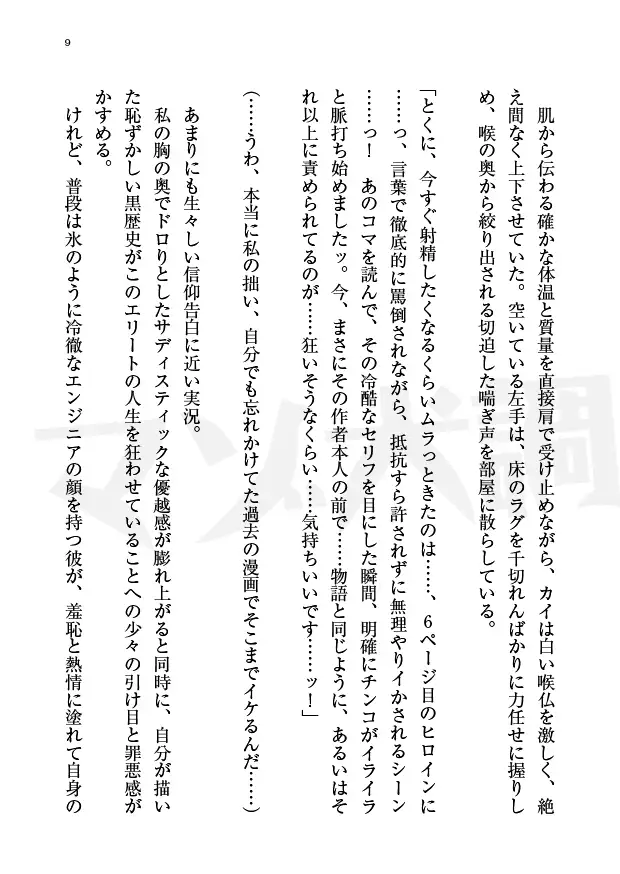 9
肌から伝わる確かな体温と質量を直接肩で受け止めながら、カイは白い喉仏を激しく、絶
え間なく上下させていた。空いている左手は、床のラグを千切れんばかりに力任せに握りし
め、喉の奥から絞り出される切迫した喘ぎ声を部屋に散らしている。
「とくに、今すぐ射精したくなるくらいムラっときたのは……、6ページ目のヒロインに
……っ、言葉で徹底的に罵倒されながら、抵抗すら許されずに無理やりイかされるシーン
……っ！　あのコマを読んで、その冷酷なセリフを目にした瞬間、明確にチンコがイライラ
と脈打ち始めましたッ。今、まさにその作者本人の前で……物語と同じように、あるいはそ
れ以上に責められてるのが……狂いそうなくらい……気持ちいいです……ッ！」
（……うわ、本当に私の拙い、自分でも忘れかけてた過去の漫画でそこまでイケるんだ……）
あまりにも生々しい信仰告白に近い実況。
私の胸の奥でドロりとしたサディスティックな優越感が膨れ上がると同時に、自分が描い
た恥ずかしい黒歴史がこのエリートの人生を狂わせていることへの少々の引け目と罪悪感が
かすめる。
けれど、普段は氷のように冷徹なエンジニアの顔を持つ彼が、羞恥と熱情に塗れて自身の
マゾ犬調